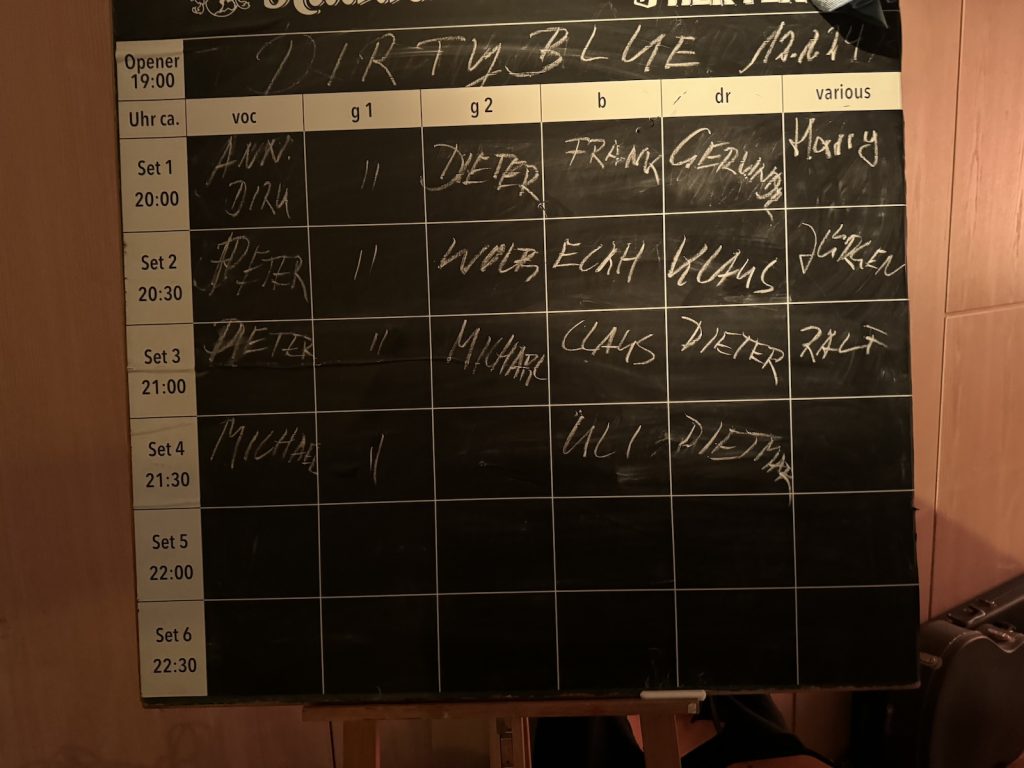 Opener
19:00
DIRTY BLUE
Uhr ca.
voc
g 1
g 2
b
dr
various
Set 1
20:00
ANN.
DIRK
"
DIETER
FRANK
Harry
Set 2
20:30
PETER
"
WOLF
ECKH
KLAUS
JÜRGEN
Set 3
21:00
DIETER
"
MICHAEL
CLAUS
DIETER
RALF
Set 4
21:30
MICHAEL
"
ULI
DIETMAR
Set 5
22:00
Set 6
22:30